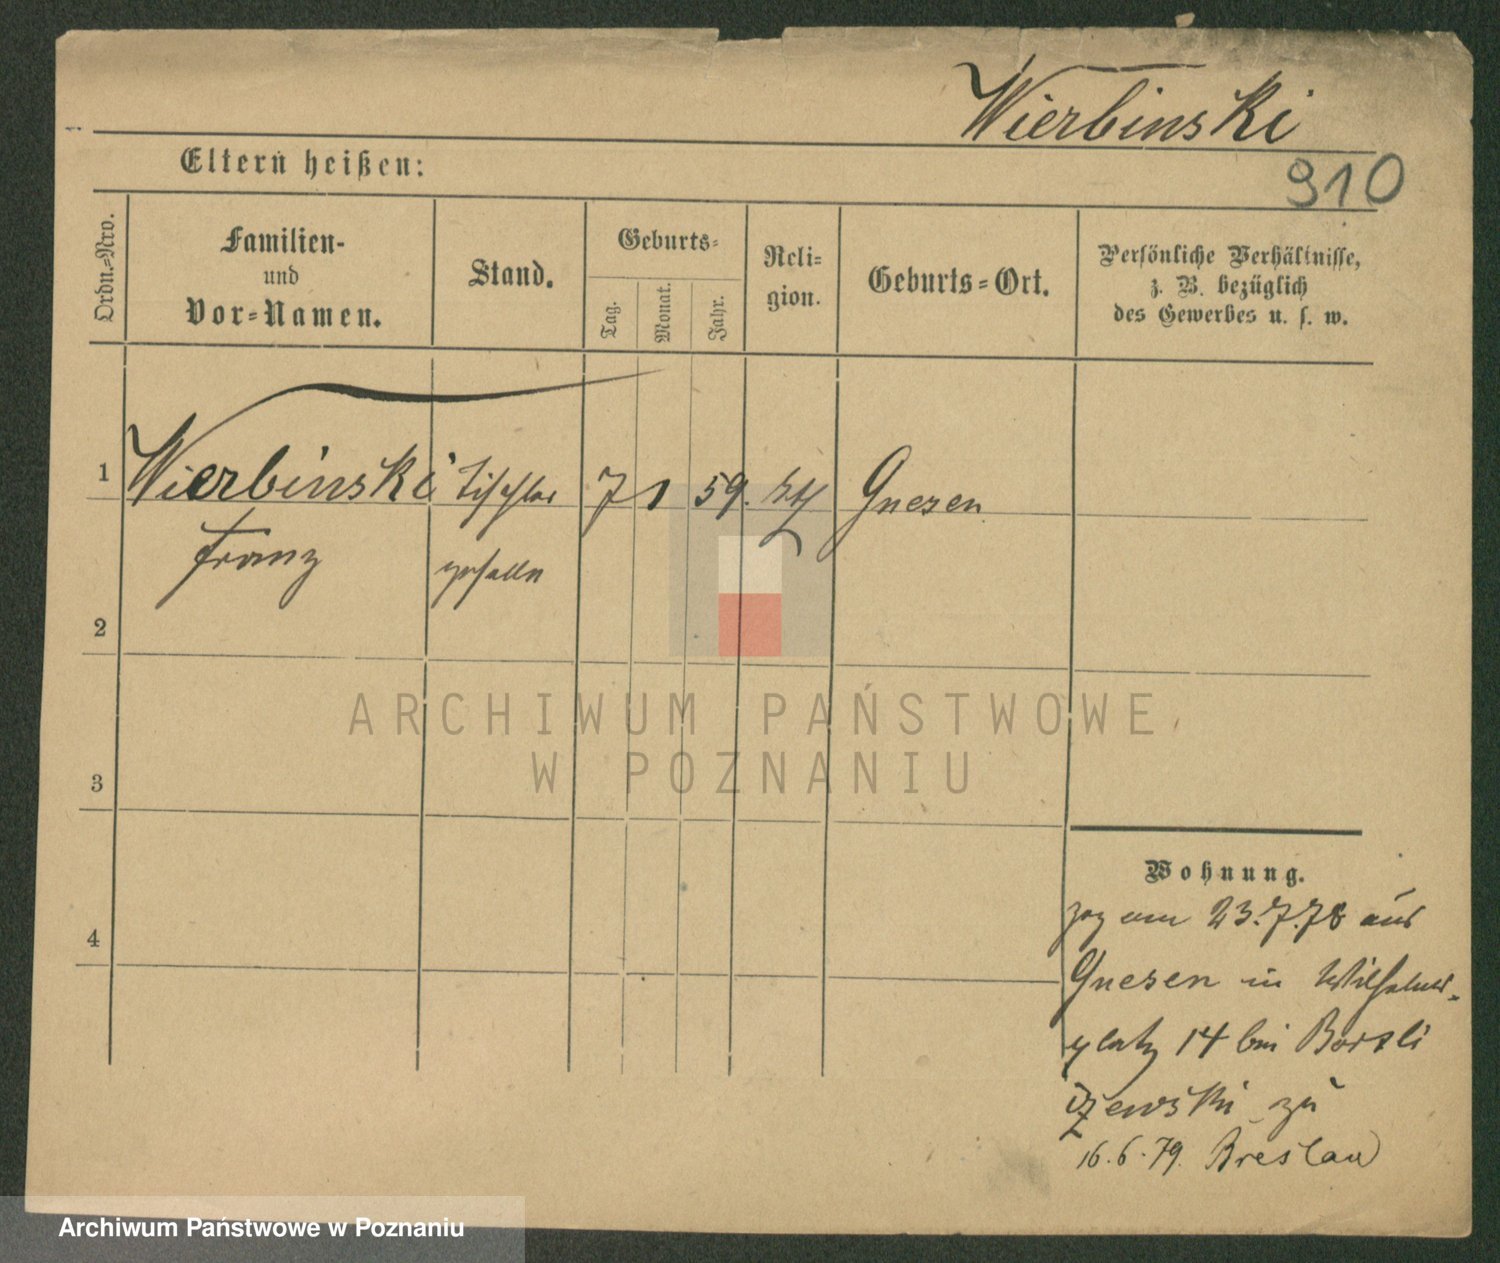 Wierbinski
Eltern heißen:
910
Ordn.=Nro.
Familien-
und
Vor=Namen.
Stand.
Geburts=
Tag.
Monat.
Jahr.
Reli=
gion.
Geburts=Ort.
Persönliche Verhältnisse,
z. B. bezüglich
des Gewerbes u. s. w.
1 Wierbinski Tischler 7 1 59. kth Gnesen
Franz geselle
2
3
4
Wohnung.
zog am 23.7.78 aus
Gnesen in Wilhelms-
platz 14 bei
zu
16.6.79. Breslau
ARCHIWUM PAŃSTWOWE
W POZNANIU
Archiwum Państwowe w Poznaniu